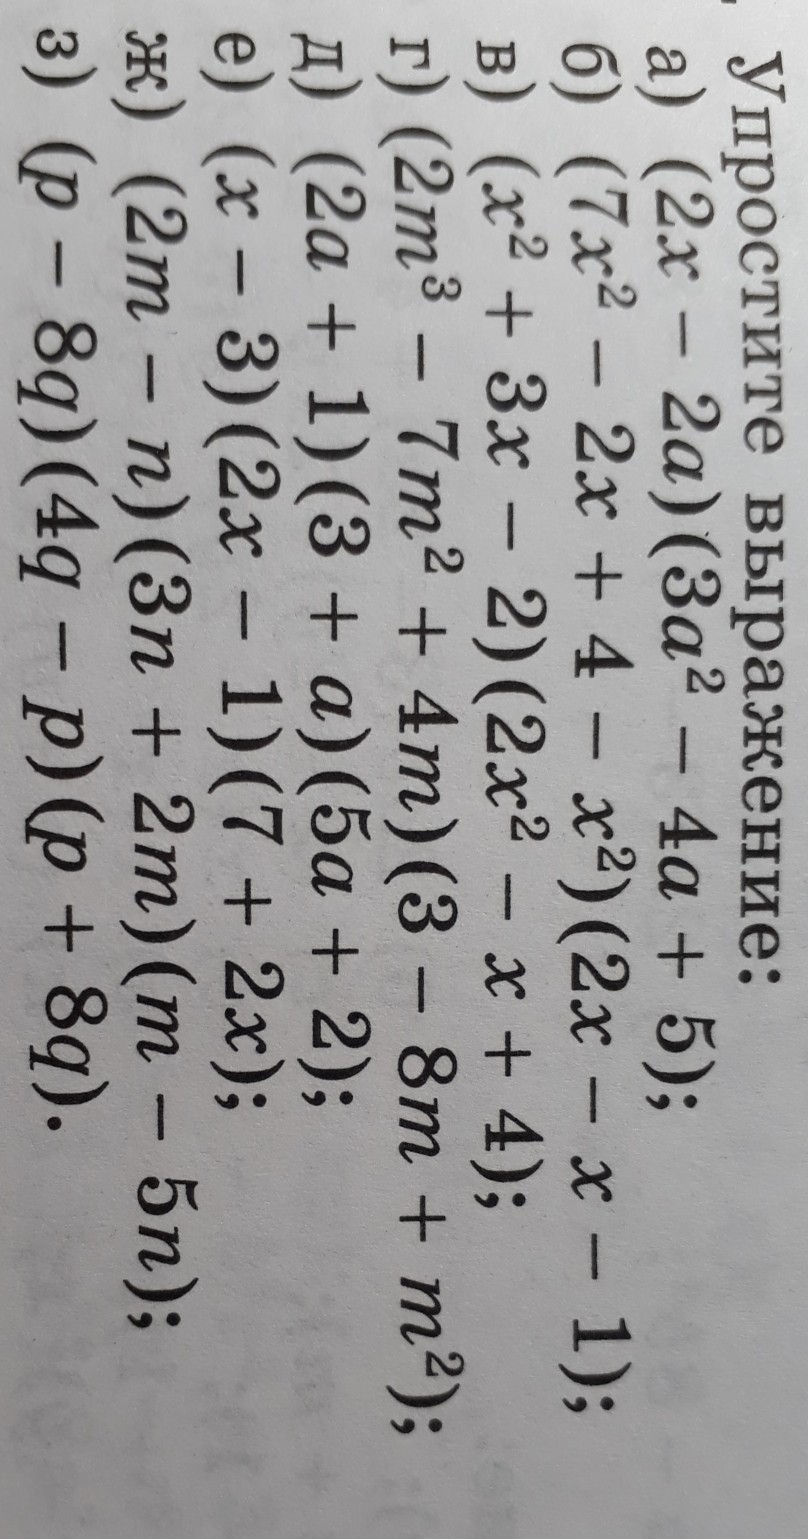 Упростите выражение:
а) (2x − 2a)(3a² − 4a + 5);
б) (7x² − 2x + 4 − x²)(2x − x − 1);
в) (x² + 3x − 2)(2x² − x + 4);
г) (2m³ − 7m² + 4m)(3 − 8m + m²);
д) (2a + 1)(3 + a)(5a + 2);
е) (x − 3)(2x − 1)(7 + 2x);
ж) (2m − n)(3n + 2m)(m − 5n);
з) (p − 8q)(4q − p)(p + 8q).